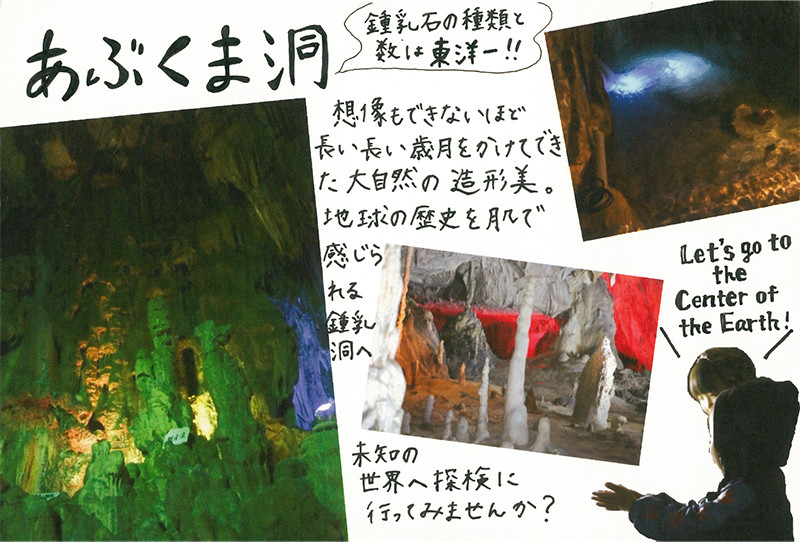 あぶくま洞
鍾乳石の種類と
数は東洋一!!
想像もできないほど
長い長い歳月をかけてでき
た大自然の造形美。
地球の歴史を肌で
感じら
れる
鍾乳
洞へ
Let's go to
the
Center of
the Earth!
未知の
世界へ探検に
行ってみませんか?